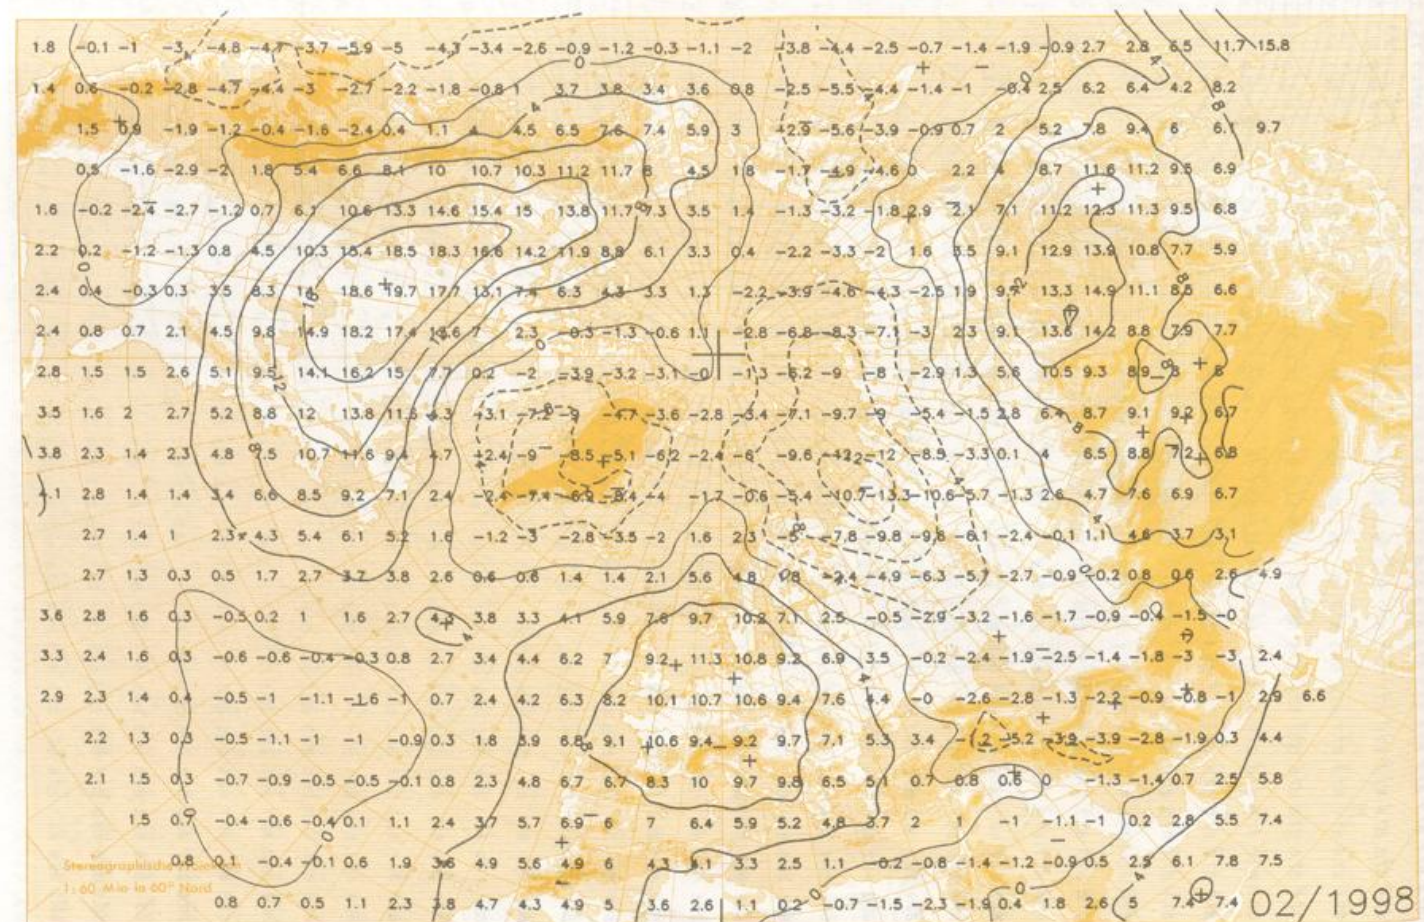 1.8 -0.1 -1 -3 -4.8 -4.7 -3.7 -5.9 -5 -4.3 -3.4 -2.6 -0.9 -1.2 -0.3 -1.1 -2 -3.8 -4.4 -2.5 -0.7 -1.4 -1.9 -0.9 2.7 2.8 6.5 11.7 15.8
1.4 0.6 -0.2 -2.8 -4.7 -4.4 -3 -2.7 -2.2 -1.8 -0.8 1 3.7 3.8 3.4 3.6 0.8 -2.5 -5.5 -4.4 -1.4 -1 -0.4 2.5 6.2 6.4 4.2 8.2
1.5 0.9 -1.9 -1.2 -0.4 -1.6 -2.4 0.4 1.1 4 4.5 6.5 7.6 7.4 5.9 3 -2.9 -5.6 -3.9 -0.9 0.7 2 5.2 7.8 9.4 6 6.1 9.7
0.5 -1.6 -2.9 -2 1.8 5.4 6.6 8.1 10 10.7 10.3 11.2 11.7 8 4.5 1.8 -1.7 -4.9 -4.6 0 2.2 4 8.7 11.6 11.2 9.5 6.9
1.6 -0.2 -2.4 -2.7 -1.2 0.7 6.1 10.6 13.3 14.6 15.4 15 13.8 11.7 7.3 3.5 1.4 -1.3 -3.2 -1.8 2.9 2.1 7.1 11.2 12.3 11.3 9.5 6.8
2.2 0.2 -1.2 -1.3 0.8 4.5 10.3 15.4 18.5 18.3 16.6 14.2 11.9 8.8 6.1 3.3 0.4 -2.2 -3.3 -2 1.6 3.5 9.1 12.9 13.9 10.8 7.7 5.9
2.4 0.4 -0.3 0.3 3.5 8.3 18.6 19.7 17.7 13.1 7.4 6.3 4.3 3.3 1.3 -2.2 -3.9 -4.6 -4.3 -2.5 1.9 13.3 14.9 11.1 8.5 6.6
2.4 0.8 0.7 2.1 4.5 9.8 14.9 18.2 17.4 7 2.3 -0.3 -1.3 -0.6 1.1 -2.8 -6.8 -8.3 -7.1 -3 2.3 9.1 13.6 14.2 8.8 7.9 7.7
2.8 1.5 1.5 2.6 5.1 9.5 14.1 16.2 15 7.7 0.2 -2 -3.9 -3.2 -3.1 -0 -1.3 -6.2 -9 -8 -2.9 1.3 5.6 10.5 9.3 8.9 8 6
3.5 1.6 2 2.7 5.2 8.8 12 13.8 11.3 4.3 -3.1 -7.2 -9 -4.7 -3.6 -2.8 -3.4 -7.1 -9.7 -9 -5.4 -1.5 2.8 6.4 8.7 9.1 9.2 6.7
3.8 2.3 1.4 2.3 4.8 7.5 10.7 11.6 9.4 4.7 -2.4 -9 -8.5 -5.1 -6.2 -2.4 -6 -9.6 -12.2 -12 -8.5 -3.3 0.1 4 6.5 8.8 7.2 6.8
4.1 2.8 1.4 1.4 3.4 6.6 8.5 9.2 7.1 2.4 -2.4 -7.4 -6.9 -8.4 -4 -1.7 -0.6 -5.4 -10.7 -13.3 -10.6 -5.7 -1.3 2.6 4.7 7.6 6.9 6.7
2.7 1.4 1 2.3 4.3 5.4 6.1 5.2 1.6 -1.2 -3 -2.8 -3.5 -2 1.6 2.3 -5 -7.8 -9.8 -9.6 -6.1 -2.4 -0.1 1.1 4.6 3.7 3.1
2.7 1.3 0.3 0.5 1.7 2.7 3.7 3.8 2.6 0.6 0.6 1.4 1.4 2.1 5.6 4.8 1.8 -2.4 -4.9 -6.3 -5.7 -2.7 -0.9 -0.2 0.8 0.6 2.6 4.9
3.6 2.8 1.6 0.3 -0.5 0.2 1 1.6 2.7 4.3 3.8 3.3 4.1 5.9 7.8 9.7 10.2 7.1 2.5 -0.5 -2.9 -3.2 -1.6 -1.7 -0.9 -0.4 -1.5 -0
3.3 2.4 1.6 0.3 -0.6 -0.6 -0.4 -0.3 0.8 2.7 3.4 4.4 6.2 7 9.2 11.3 10.8 9.2 6.9 3.5 -0.2 -2.4 -1.9 -2.5 -1.4 -1.8 -3 -3 2.4
2.9 2.3 1.4 0.4 -0.5 -1 -1.1 -1.6 -1 0.7 2.4 4.2 6.3 8.2 10.1 10.7 10.6 9.4 7.6 4.4 -0 -2.6 -2.8 -1.3 -2.2 -0.9 -0.8 -1 2.9 6.6
2.2 1.3 0.3 -0.5 -1.1 -1 -1 -0.9 0.3 1.8 3.9 6.8 9.1 10.6 9.4 9.2 9.7 7.1 5.3 3.4 -5.2 -3.9 -3.9 -2.8 -1.9 0.3 4.4
2.1 1.5 0.3 -0.7 -0.9 -0.5 -0.5 -0.1 0.8 2.3 4.8 6.7 6.7 8.3 10 9.7 9.8 6.5 5.1 0.7 0.8 0.6 0 -1.3 -1.4 0.7 2.5 5.8
1.5 0.7 -0.4 -0.6 -0.4 0.1 1.1 2.4 3.7 5.7 6.9 6 7 6.4 5.9 5.2 4.8 3.7 2 1 -1 -1.1 -1 0.2 2.8 5.5 7.4
0.8 0.1 -0.4 -0.1 0.6 1.9 3.6 4.9 5.6 4.9 6 4.3 4.1 3.3 2.5 1.1 -0.2 -0.8 -1.4 -1.2 -0.9 0.5 2.5 6.1 7.8 7.5
Stereographische
1:60 Mio in 60° Nord
0.8 0.7 0.5 1.1 2.3 3.8 4.7 4.3 4.9 5 3.6 2.6 1.1 0.2 -0.7 -1.5 -2.3 -1.9 0.4 1.8 2.6 5 7.4 7.4
02/1998